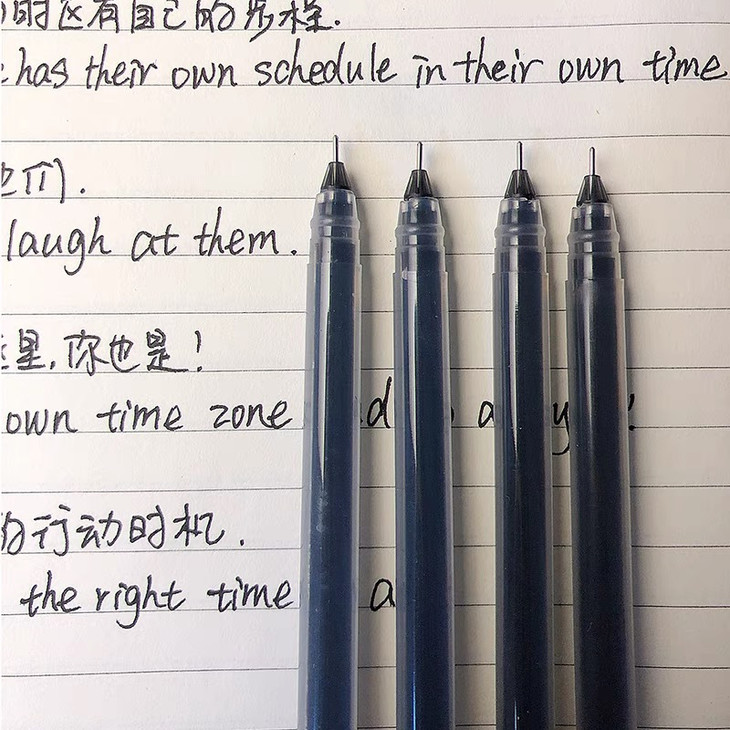 时区有自己的步程.
has their own schedule in their own time
也们.
laugh at them.
里,你也是!
own time zone
的行动时机.
the right time a